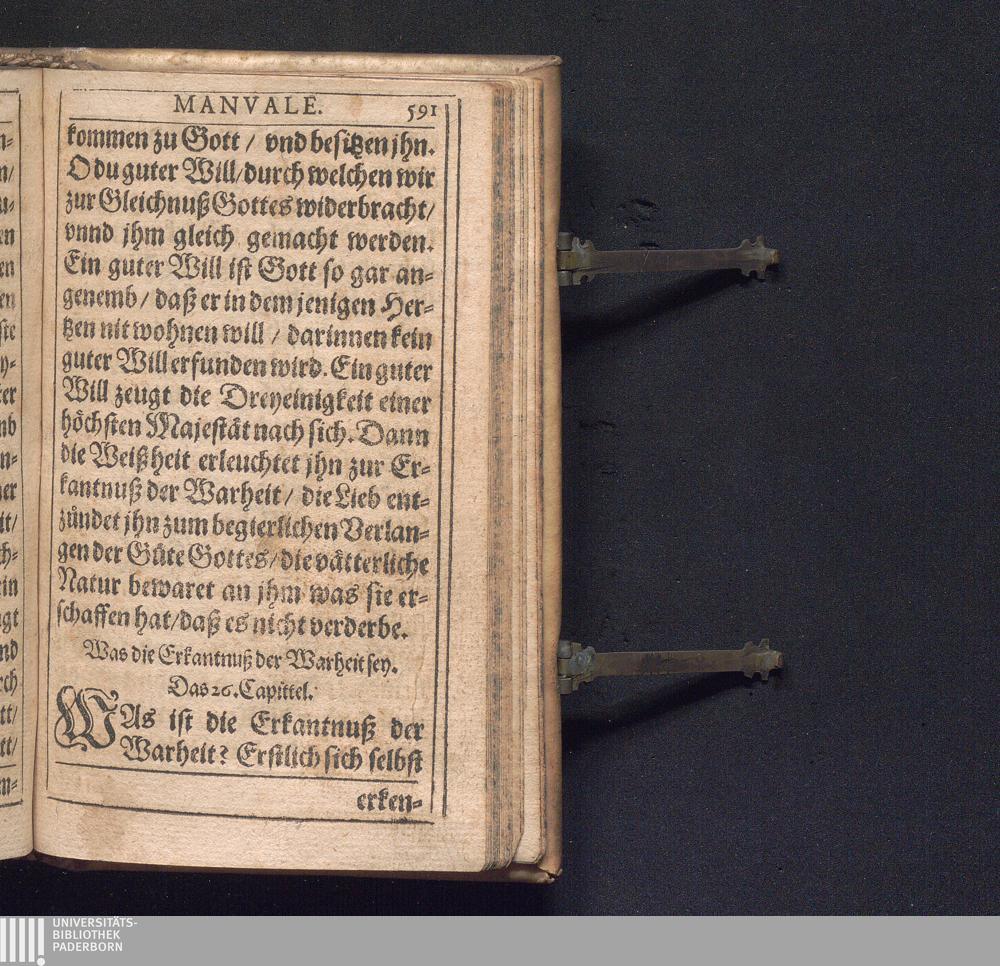 MANVALE. 591
kommen zu Gott / vnd besitzen jhn.
O du guter Will / durch welchen wir
zur Gleichnuß Gottes widerbracht /
vnnd jhm gleich gemacht werden.
Ein guter Will ist Gott so gar an-
genemb / daß er in dem jenigen Her-
tzen nit wohnen will / darinnen kein
guter Will erfunden wird. Ein guter
Will zeugt die Dreyeinigkeit einer
höchsten Majestät nach sich. Dann
die Weißheit erleuchtet jhn zur Er-
kantnuß der Warheit / die Lieb ent-
zündet jhn zum begierlichen Verlan-
gen der Güte Gottes / die vätterliche
Natur bewaret an jhm was sie er-
schaffen hat / daß es nicht verderbe.
Was die Erkantnuß der Warheit sey.
Das 26. Capittel.
WAs ist die Erkantnuß der
Warheit? Erstlich sich selbst
erken-
UNIVERSITÄTS-
BIBLIOTHEK
PADERBORN